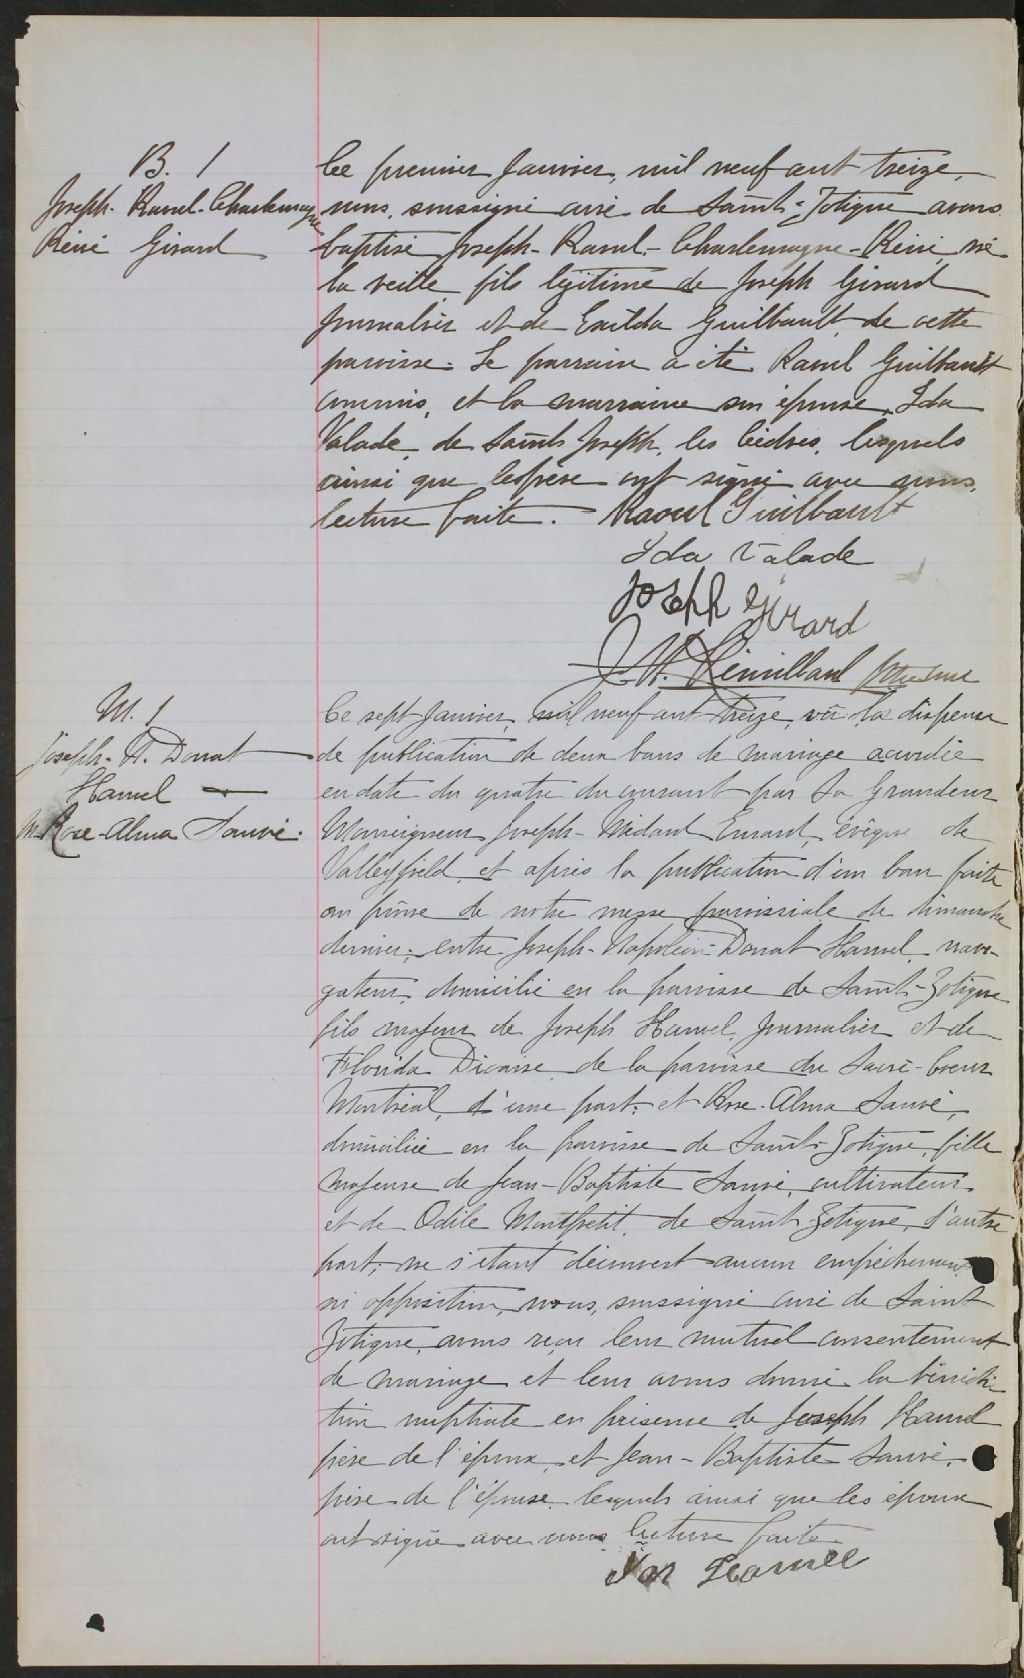 B. 1
Joseph-Raoul-Charlemagne
Réné Girard
Ce premier Janvier, mil neuf cent treize,
nous, soussigné curé de Saint-Zotique avons
baptisé Joseph-Raoul-Charlemagne-Réné, né
la veille, fils légitime de Joseph Girard
journalier et de Exilda Guilbault de cette
paroisse. Le parrain a été Raoul Guilbault
commis, et la marraine son épouse, Ida
Valade, de Saint Joseph, les Cèdres, lesquels
ainsi que le père ont signé avec nous,
lecture faite. Raoul Guilbault
Ida Valade
Joseph Girard
J. H. Rémillard Ptre Curé
M. 1
Joseph-N. Donat
Hamel
Rose-Alma Sauvé.
Ce sept Janvier, mil neuf cent treize, vû la dispense
de publication de deux bans de mariage accordée
en date du quatre du courant par Sa Grandeur
Monseigneur Joseph-Médard Emard, évêque de
Valleyfield, et après la publication d'un ban faite
au prône de notre messe paroissiale de dimanche
dernier, entre Joseph-Napoléon-Donat Hamel, navi-
gateur, domicilié en la paroisse de Saint-Zotique
fils majeur de Joseph Hamel, journalier et de
Florida Dicaire de la paroisse du Sacré-Coeur
Montréal, d'une part, et Rose-Alma Sauvé,
domiciliée en la paroisse de Saint-Zotique, fille
majeure de Jean-Baptiste Sauvé, cultivateur
et de Odile Montpetit, de Saint Zotique, d'autre
part; ne s'étant découvert aucun empêchement
ni opposition, nous, soussigné curé de Saint
Zotique, avons reçu leur mutuel consentement
de mariage et leur avons donné la bénédic-
tion nuptiale en présence de Joseph Hamel
père de l'époux, et Jean-Baptiste Sauvé,
père de l'épouse, lesquels ainsi que les époux
ont signé avec nous lecture faite
Jos Hamel